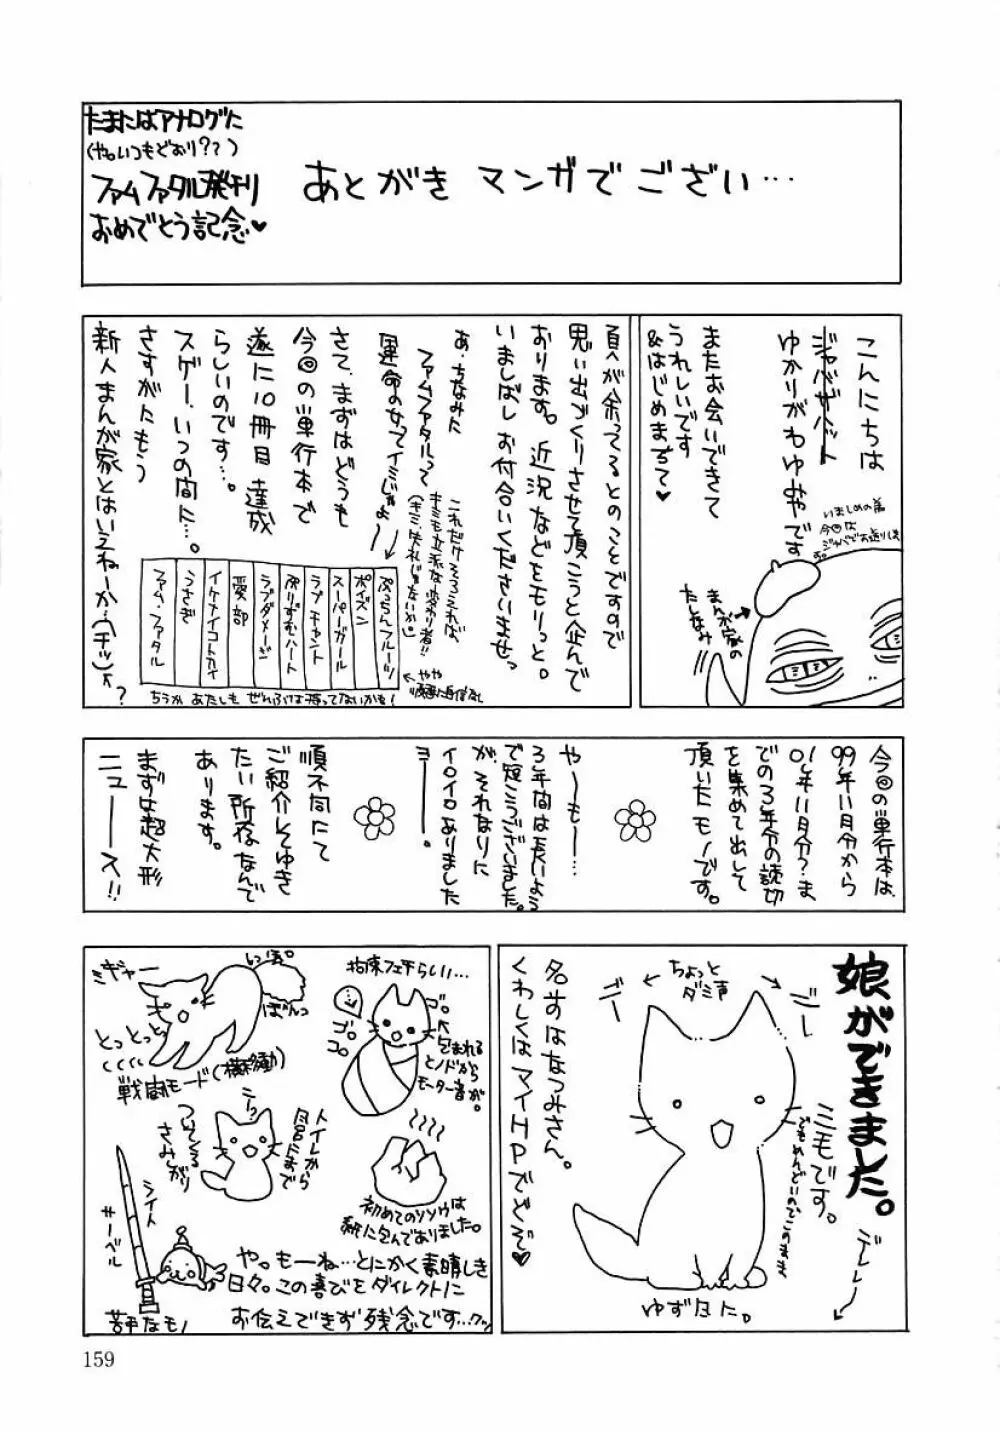 たまにはアナログに
(や、いつもどおり??)
ファムファタル発刊
おめでとう記念♥
あとがき マンガでござい…
こんにちは
ジャバザハット
ゆかりがわゆやです
いましめの為
今回は
ジャバでお送りしま
す。
またお会いできて
うれしいです
&はじめまちて♥
まんが家の
たしなみ
頁が余ってるとのことですので
思い出づくりさせて頂こうと企んで
おります。近況などをモリっと。
いましばし お付合いくださいませっ
あ、ちなみに
ファムファタルって
運命の女ってイミじゃよー
これだけそろってみれば、
キミも立派な変わり者!!
(キミ、失礼じゃないか。)
さて、まずはどうも
今回の単行本で
遂に10冊目達成
らしいのです…。
スゲー、いつの間に…。
さすがにもう
新人まんが家とはいえねーか…(チッ)
?
ぷっちんフルーツ
ポイズン
スーパーガール
ラブチャント
ぷりずむハート
ラブダメージ
愛部
イケナイコトカイ
うさぎ
ファム・ファタル
←やや
順番に自信なし
ちうか あたしも ぜんぶは持ってないかも!
今回の単行本は、
99年11月分から
01年11月分?ま
での3年分の読切
を集めて出して
頂いたモノです。
や〜も〜…
3年間は長いよう
で短こうございました。
が、それなりに
イロイロありました
ヨ———。
順不同にて
ご紹介してゆき
たい所存なんで
あります。
まずは超大形
ニュース!!
娘ができました。
ミモです。
でもめんどいのでこのまま
ちょっと
ダミ声
ジー
ゴー
デレレレ
名付はなつみさん。
くわしくはマイHPでどぞ♥
ゆず日に。
ミギャー
いっちょ。
ぼんっ
とっとっとっ
戦闘モード(横移動)
指凍フェチらしい…
ゴロゴロ
ゴ。
包まれる
とノドから
モーター音が。
ニーっ
トイレから
尽呂にまで
ついてくる
さみしがり
初めてのソソウは
紙に包んでありました。
ライト
サーベル
苦手なモノ
や。もーね…とにかく素晴しき
日々。この喜びをダイレクトに
お伝えできず残念です…クッ
159